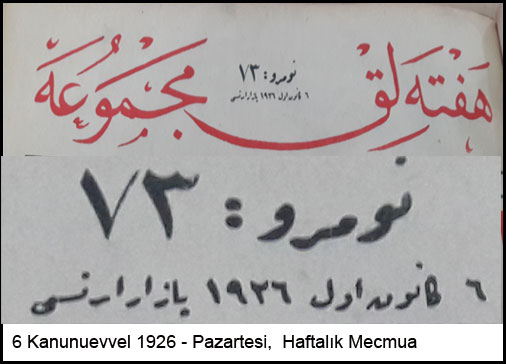 هفته لق مجموعه
نومرو : ٧٣
٦ كانون اول ١٩٢٦ بازار ارتسی
نومرو : ٧٣
٦ كانون اول ١٩٢٦ بازار ارتسی
6 Kanunuevvel 1926 - Pazartesi, Haftalık Mecmua